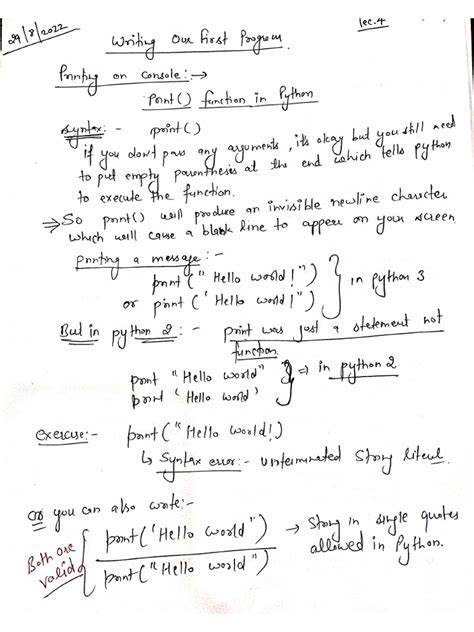 29/8/2022
lec.4
Writing Our first Program
Printing on console:→
Print() function in Python
Syntax:- print()
if you don't pass any arguments, its okay but you still need
to put empty parenthesis at the end which tells python
to execute the function.
⇒ So print() will produce an invisible newline character
which will cause a blank line to appear on your screen
Printing a message:-
print("Hello world!")
or print('Hello world!')
} in python 3
But in python 2:- print was just a statement not
function.
print "Hello world"
print 'Hello world'
} ⇒ in python 2
exercise:- print("Hello world!)
↳ Syntax error:- unterminated String literal.
Or you can also write:-
Both are valid {
print('Hello world")
print("Hello world")
→ String in single quotes
allowed in Python.